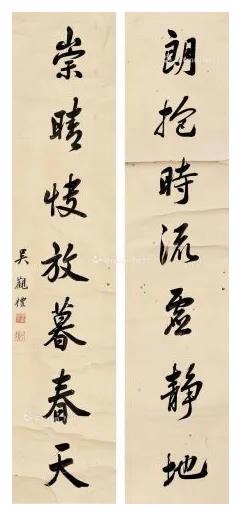 朗抱時流虛靜地
崇晴㥄放暮春天
吳觀禮